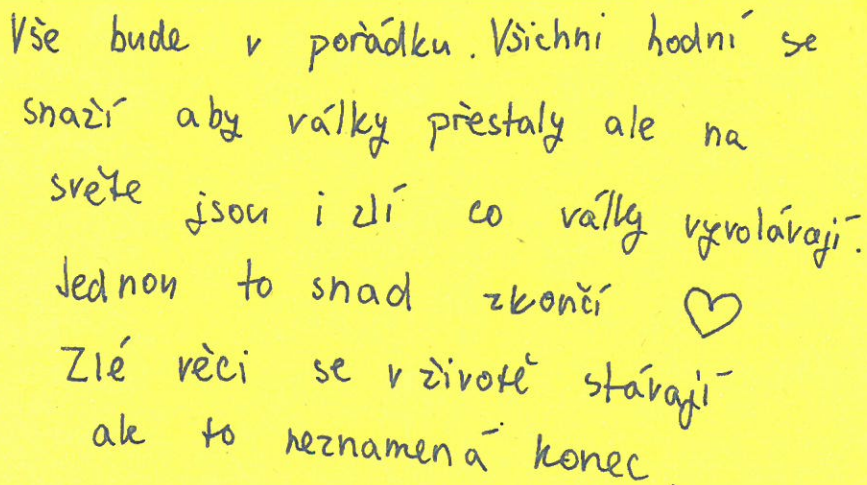 Vše bude v pořádku. Všichni hodní se
snaží aby války přestaly ale na
světe jsou i zlí co války vyvolávají.
Jednou to snad zkončí ♡
Zlé věci se v životě stávají
ale to neznamená konec.